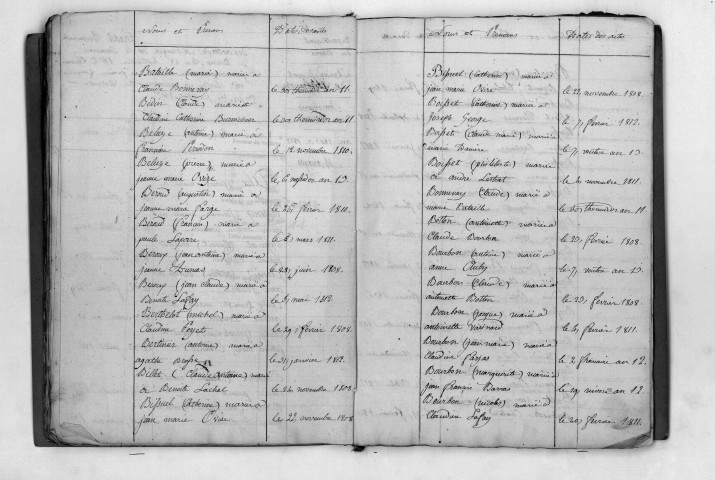 Noms et Prénoms
Dates des actes
Bataille (marie) mariée à
Claude Bonnevay le 20 thermidor an 11
Bidon (Claude) marié et
Claudine Catherine le 20 thermidor an 11
Beluze (antoine) marié à
françoise le 12 novembre 1810.
Beluze (pierre) marié à
jeanne marie Ovize le 6 messidor an 13
Beroud (augustin) marié à
jeanne marie farge le 26 février 1811.
Beroud (françois) marié à
paule Laporre le 5 mars 1811.
Beroux (jean antoine) marié à
jeanne Dumas le 28 juin 1808.
Beroux (jean claude) marié à
Benoite Lafay le 5 mai 1812
Berthelot (michel) marié à
Claudine Poyet le 29 février 1808.
Bertinier (antoine) marié à
agathe le 21 janvier 1812.
Billet (Claude antoine) marié
à Benoite Lachal le 24 novembre 1808
Bissuel (Catherine) mariée à
jean marie Ovize le 22 novembre 1808
Noms et Prénoms
Dates des actes
Bissuel (Catherine) mariée à
jean marie Ovize le 22 novembre 1808.
Boisset (Catherine) mariée à
Joseph le 7 février 1812.
Boisset (Claude marie) marié
marie le 7 ventose an 13.
Boisset (philiberte) mariée
à andré le 4 novembre 1811.
Bonnevay (Claude) marié à
marie Bataille le 20 thermidor an 11
Botton (antoinette) mariée à
Claude Bourbon le 23 février 1808.
Bourbon (antoine) marié à
anne le 7 ventose an 13.
Bourbon (Claude) marié à
antoinette Botton le 23 février 1808
Bourbon marié à
antoinette le 5 février 1811.
Bourbon (jean marie) marié à
Claudine Farjas le 2 frimaire an 12.
Bourbon (marguerite) mariée à
jean françois le 29 nivose an 12.
Bourbon (nicolas) marié à
Claudine Lafay le 20 février 1811.